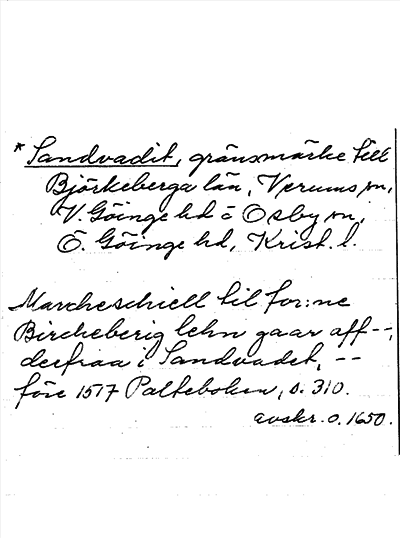 * Sandvadit, gränsmärke till
Björkeberga län, Verums sn,
V. Göinge hd o Osby sn,
Ö. Göinge hd, Krist. l.
Marcheschiell til for:ne
Bircheberig lehn gaar aff --,
derfraa i Sandvadet, --
före 1517 Palteboken, s. 310.
avskr. o. 1650.